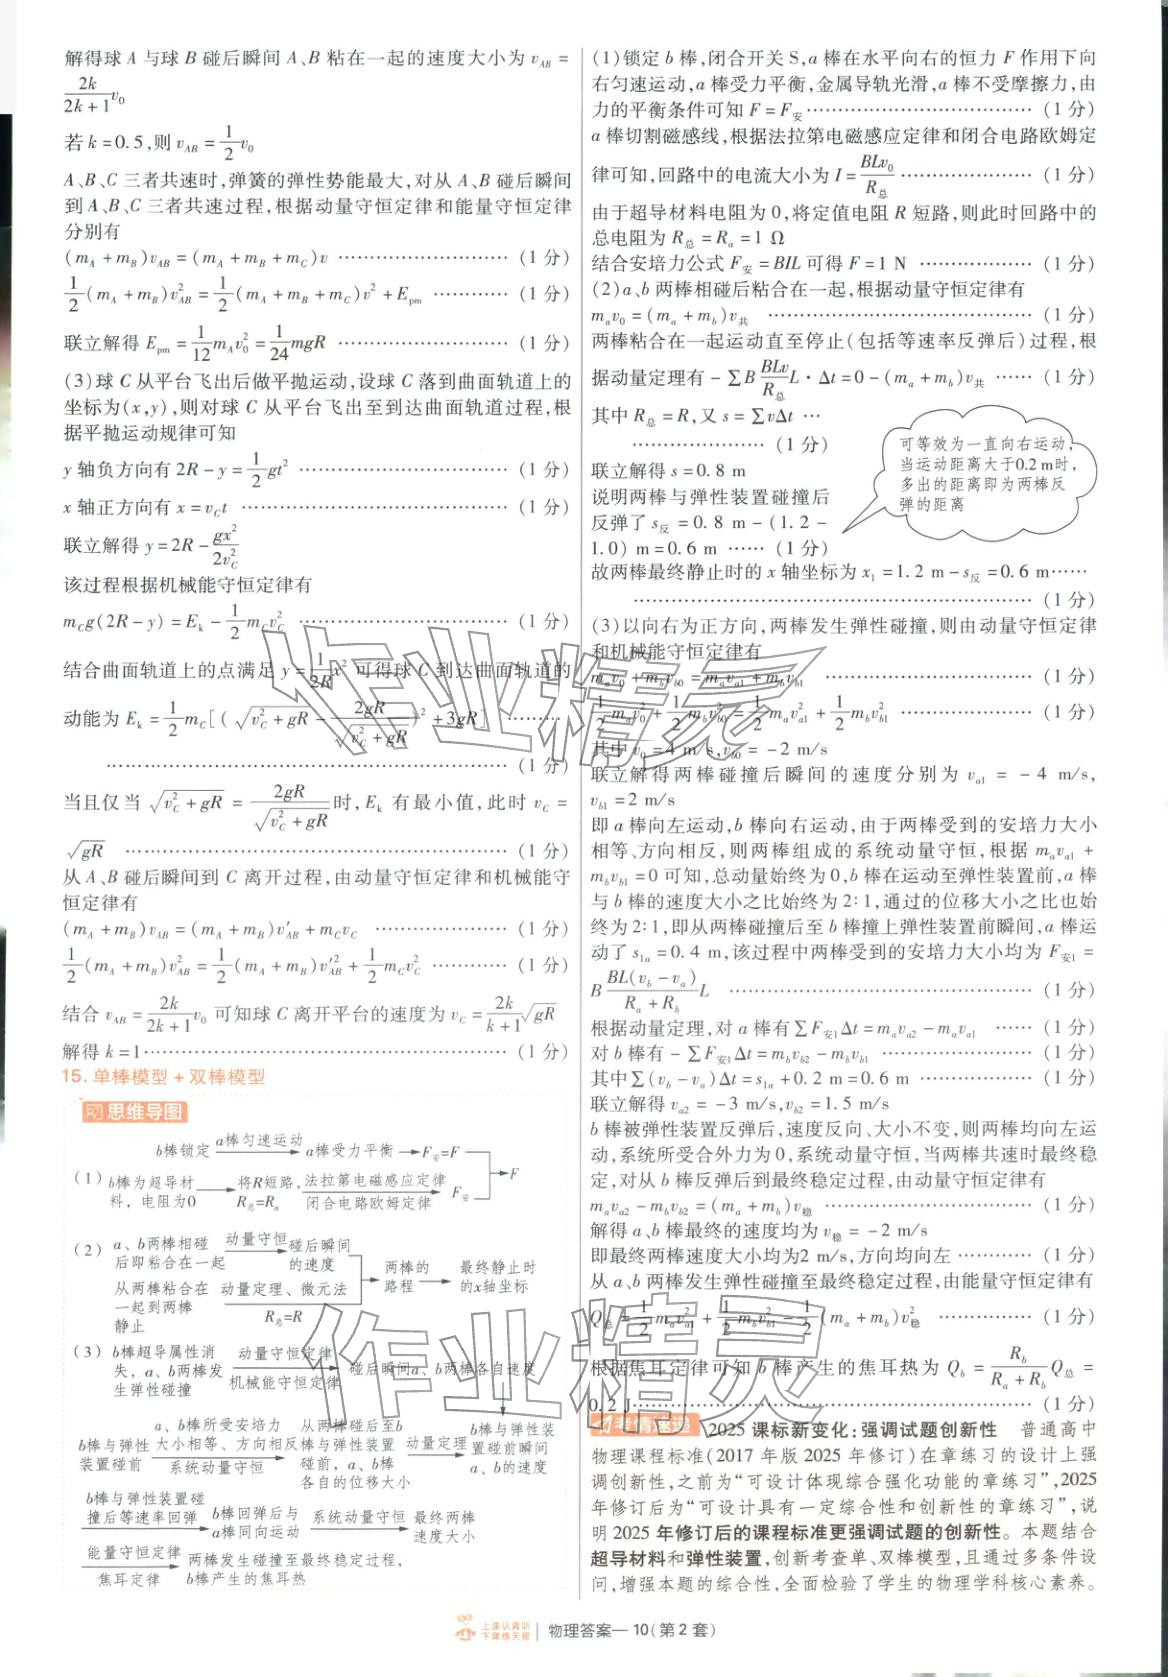 解得球 A 与球 B 碰后瞬间 A、B 粘在一起的速度大小为 v_AB =
2k/(2k+1) v₀
若 k=0.5,则 v_AB = 1/2 v₀
A、B、C 三者共速时,弹簧的弹性势能最大,对从 A、B 碰后瞬间
到 A、B、C 三者共速过程,根据动量守恒定律和能量守恒定律
分别有
(m_A+m_B)v_AB=(m_A+m_B+m_C)v …………………… (1 分)
1/2(m_A+m_B)v²_AB=1/2(m_A+m_B+m_C)v²+E_pm ………… (1 分)
联立解得 E_pm=1/12 m_A v₀²=1/24 mgR …………………… (1 分)
(3)球 C 从平台飞出后做平抛运动,设球 C 落到曲面轨道上的
坐标为(x,y),则对球 C 从平台飞出至到达曲面轨道过程,根
据平抛运动规律可知
y 轴负方向有 2R-y=1/2 gt² ………………………… (1 分)
x 轴正方向有 x=v_C t ………………………………… (1 分)
联立解得 y=2R-gx²/(2v_C²)
该过程根据机械能守恒定律有
m_C g(2R-y)=E_k-1/2 m_C v_C² ………………………… (1 分)
结合曲面轨道上的点满足 y=1/(2R) x² 可得球 C 到达曲面轨道的
动能为 E_k=1/2 m_C[(√(v_C²+gR)-2gR/√(v_C²+gR))²+3gR] ………
………………………………………………………… (1 分)
当且仅当 √(v_C²+gR)=2gR/√(v_C²+gR) 时,E_k 有最小值,此时 v_C=
√(gR) ………………………………………………… (1 分)
从 A、B 碰后瞬间到 C 离开过程,由动量守恒定律和机械能守
恒定律有
(m_A+m_B)v_AB=(m_A+m_B)v′_AB+m_C v_C ……………… (1 分)
1/2(m_A+m_B)v²_AB=1/2(m_A+m_B)v′²_AB+1/2 m_C v_C² ………… (1 分)
结合 v_AB=2k/(2k+1) v₀ 可知球 C 离开平台的速度为 v_C=2k/(k+1) √(gR)
解得 k=1………………………………………………… (1 分)
15. 单棒模型+双棒模型
思维导图
(1) b棒锁定 a棒匀速运动→ a棒受力平衡→F安=F →F
b棒为超导材料,电阻为0→ 将R短路,R总=Ra 法拉第电磁感应定律 闭合电路欧姆定律→ F安
(2) a、b两棒相碰后即粘合在一起 动量守恒→ 碰后瞬间的速度
从两棒粘合在一起到两棒静止 动量定理、微元法 R总=R
两棒的路程→ 最终静止时的x轴坐标
(3) b棒超导属性消失,a、b两棒发生弹性碰撞 动量守恒定律 机械能守恒定律→ 碰后瞬间a、b两棒各自速度
b棒与弹性装置碰前 a、b棒所受安培力大小相等、方向相反 系统动量守恒→ 从两棒碰后至b棒与弹性装置碰前,a、b棒各自的位移大小 动量定理→ b棒与弹性装置碰前瞬间a、b的速度
b棒与弹性装置碰撞后等速率回弹→ b棒回弹后与a棒同向运动 系统动量守恒→ 最终两棒速度大小
能量守恒定律 焦耳定律→ 两棒发生碰撞至最终稳定过程,b棒产生的焦耳热
(1)锁定 b 棒,闭合开关 S,a 棒在水平向右的恒力 F 作用下向
右匀速运动,a 棒受力平衡,金属导轨光滑,a 棒不受摩擦力,由
力的平衡条件可知 F=F安…………………………… (1 分)
a 棒切割磁感线,根据法拉第电磁感应定律和闭合电路欧姆定
律可知,回路中的电流大小为 I=BLv₀/R总 ………………… (1 分)
由于超导材料电阻为 0,将定值电阻 R 短路,则此时回路中的
总电阻为 R总=Ra=1 Ω
结合安培力公式 F安=BIL 可得 F=1 N ……………… (1 分)
(2)a、b 两棒相碰后粘合在一起,根据动量守恒定律有
m_a v₀=(m_a+m_b)v共 ……………………………… (1 分)
两棒粘合在一起运动直至停止(包括等速率反弹后)过程,根
据动量定理有 -∑B (BLv/R总) L·Δt=0-(m_a+m_b)v共 …… (1 分)
其中 R总=R,又 s=∑vΔt …
………………… (1 分)
联立解得 s=0.8 m
说明两棒与弹性装置碰撞后
反弹了 s反=0.8 m-(1.2-
1.0) m=0.6 m …… (1 分)
可等效为一直向右运动,
当运动距离大于0.2 m时,
多出的距离即为两棒反
弹的距离
故两棒最终静止时的 x 轴坐标为 x₁=1.2 m-s反=0.6 m……
………………………………………………… (1 分)
(3)以向右为正方向,两棒发生弹性碰撞,则由动量守恒定律
和机械能守恒定律有
m_a v₀+m_b v_b0=m_a v_a1+m_b v_b1 ………………………… (1 分)
1/2 m_a v₀²+1/2 m_b v²_b0=1/2 m_a v²_a1+1/2 m_b v²_b1 ………………… (1 分)
其中 v₀=4 m/s,v_b0=-2 m/s
联立解得两棒碰撞后瞬间的速度分别为 v_a1=-4 m/s,
v_b1=2 m/s
即 a 棒向左运动,b 棒向右运动,由于两棒受到的安培力大小
相等、方向相反,则两棒组成的系统动量守恒,根据 m_a v_a1+
m_b v_b1=0 可知,总动量始终为 0,b 棒在运动至弹性装置前,a 棒
与 b 棒的速度大小之比始终为 2:1,通过的位移大小之比也始
终为 2:1,即从两棒碰撞后至 b 棒撞上弹性装置前瞬间,a 棒运
动了 s_1a=0.4 m,该过程中两棒受到的安培力大小均为 F安1=
B (BL(v_b-v_a)/(R_a+R_b)) L …………………………………… (1 分)
根据动量定理,对 a 棒有∑F安1Δt=m_a v_a2-m_a v_a1 …… (1 分)
对 b 棒有-∑F安1Δt=m_b v_b2-m_b v_b1 ………………… (1 分)
其中∑(v_b-v_a)Δt=s_1a+0.2 m=0.6 m …………… (1 分)
联立解得 v_a2=-3 m/s,v_b2=1.5 m/s
b 棒被弹性装置反弹后,速度反向、大小不变,则两棒均向左运
动,系统所受合外力为 0,系统动量守恒,当两棒共速时最终稳
定,对从 b 棒反弹后到最终稳定过程,由动量守恒定律有
m_a v_a2-m_b v_b2=(m_a+m_b)v稳 ………………………… (1 分)
解得 a、b 棒最终的速度均为 v稳=-2 m/s
即最终两棒速度大小均为2 m/s,方向均向左 ………… (1 分)
从 a、b 两棒发生弹性碰撞至最终稳定过程,由能量守恒定律有
Q总=1/2 m_a v²_a1+1/2 m_b v²_b1-1/2(m_a+m_b)v²稳 …………… (1 分)
根据焦耳定律可知 b 棒产生的焦耳热为 Q_b=R_b/(R_a+R_b) Q总=
0.2 J………………………………………………… (1 分)
考情速递 2025 课标新变化:强调试题创新性 普通高中
物理课程标准(2017 年版 2025 年修订)在章练习的设计上强
调创新性,之前为“可设计体现综合强化功能的章练习”,2025
年修订后为“可设计具有一定综合性和创新性的章练习”,说
明 2025 年修订后的课程标准更强调试题的创新性。本题结合
超导材料和弹性装置,创新考查单、双棒模型,且通过多条件设
问,增强本题的综合性,全面检验了学生的物理学科核心素养。
上课认真听
下课练天星
物理答案—10(第 2 套)
作业精灵
作业精灵